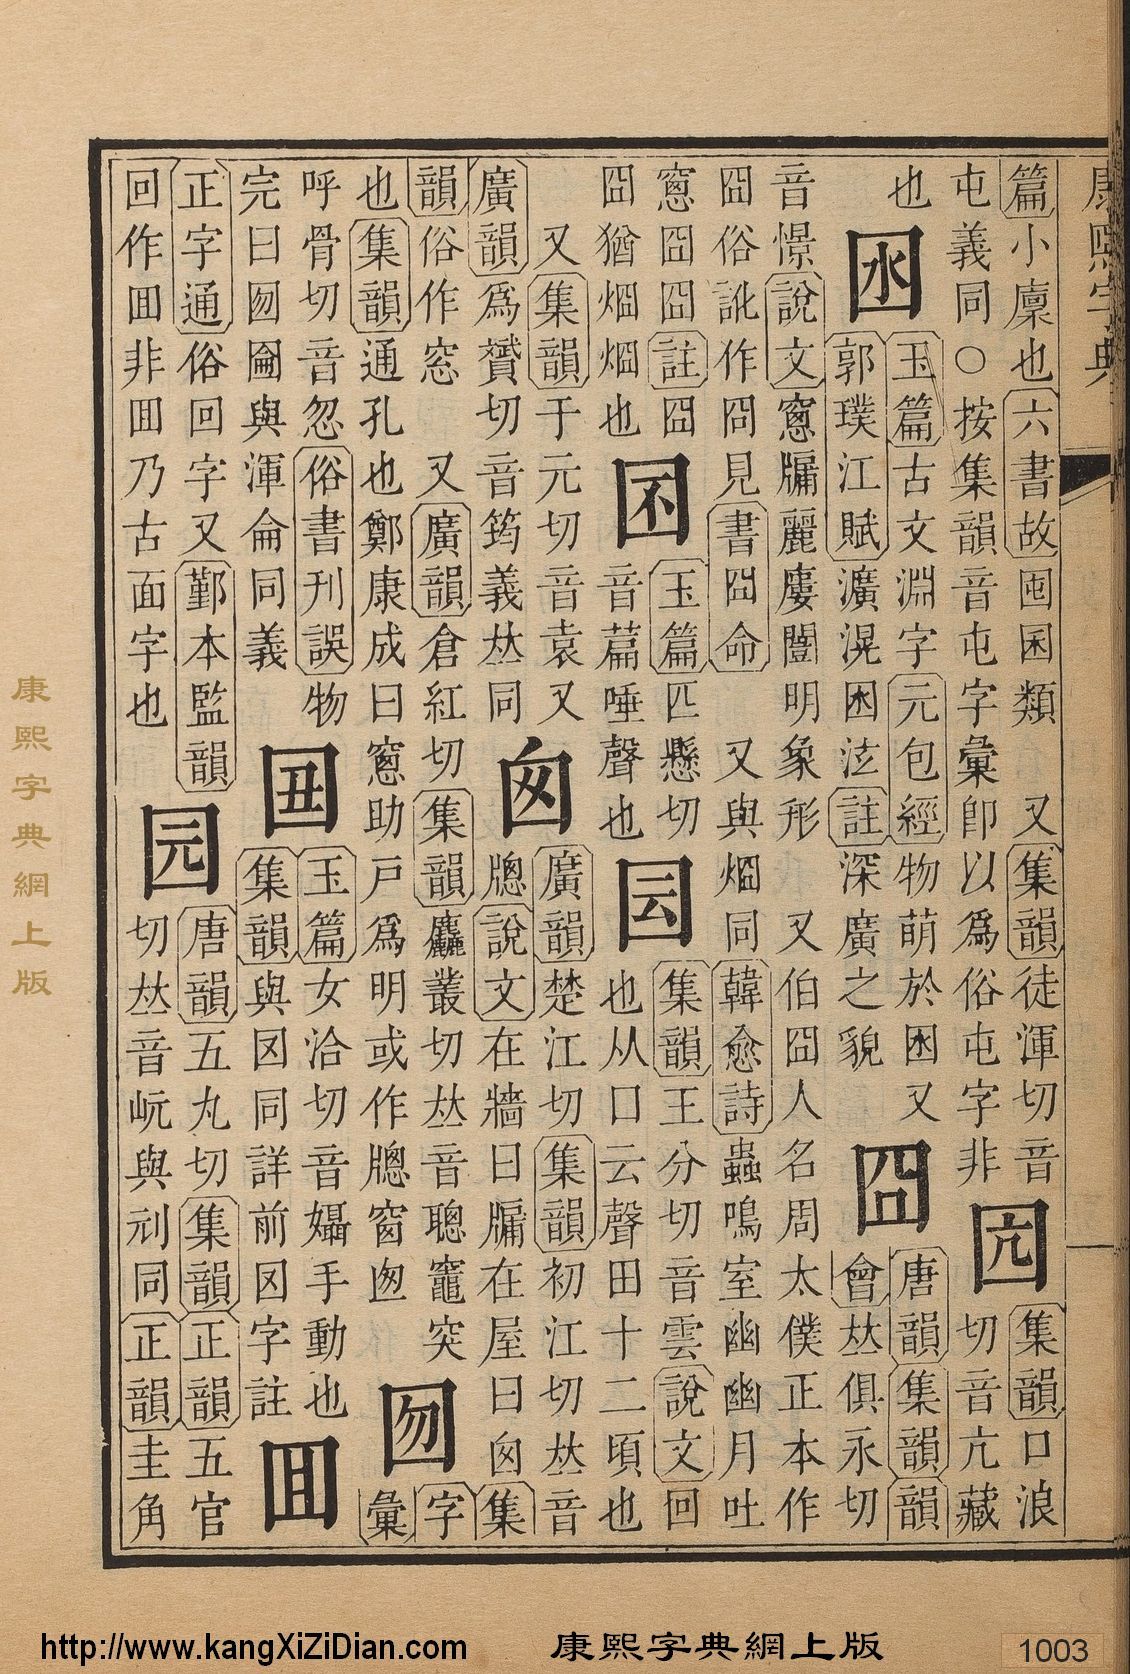 康熙字典
篇小廩也六書故囤囷類 又集韻徒渾切音
屯義同○按集韻音屯字彙卽以爲俗屯字非
囥
集韻口浪
切音亢藏
也
囦
玉篇古文淵字元包經物萌於囦又
郭璞江賦㵍滉囦泫註深廣之貌
囧
唐韻集韻韻
會𠀤俱永切
音憬說文窻牖麗廔闓明象形 又伯囧人名周太僕正本作
囧俗訛作冏見書囧命 又與烱同韓愈詩蟲鳴室幽幽月吐
窻囧囧註囧
囧猶烱烱也
囨
玉篇匹懸切
音篇唾聲也
囩
集韻王分切音雲說文回
也从囗云聲田十二頃也
又集韻于元切音袁又
廣韻爲贇切音筠義𠀤同
囪
廣韻楚江切集韻初江切𠀤音
牕說文在牆曰牖在屋曰囪集
韻俗作窓 又廣韻倉紅切集韻麤叢切𠀤音聰竈突
也集韻通孔也鄭康成曰窻助戸爲明或作牕窗囱
囫
字
彙
呼骨切音忽俗書刊誤物
完曰囫圇與渾侖同義
㘞
玉篇女洽切音㘝手動也
集韻與㘝同詳前㘝字註
囬
正字通俗回字又鄞本監韻
回作囬非囬乃古面字也
园
唐韻五丸切集韻正韻五官
切𠀤音岏與刓同正韻圭角
康熙字典網上版
http://www.kangXiZiDian.com 康熙字典網上版 1003